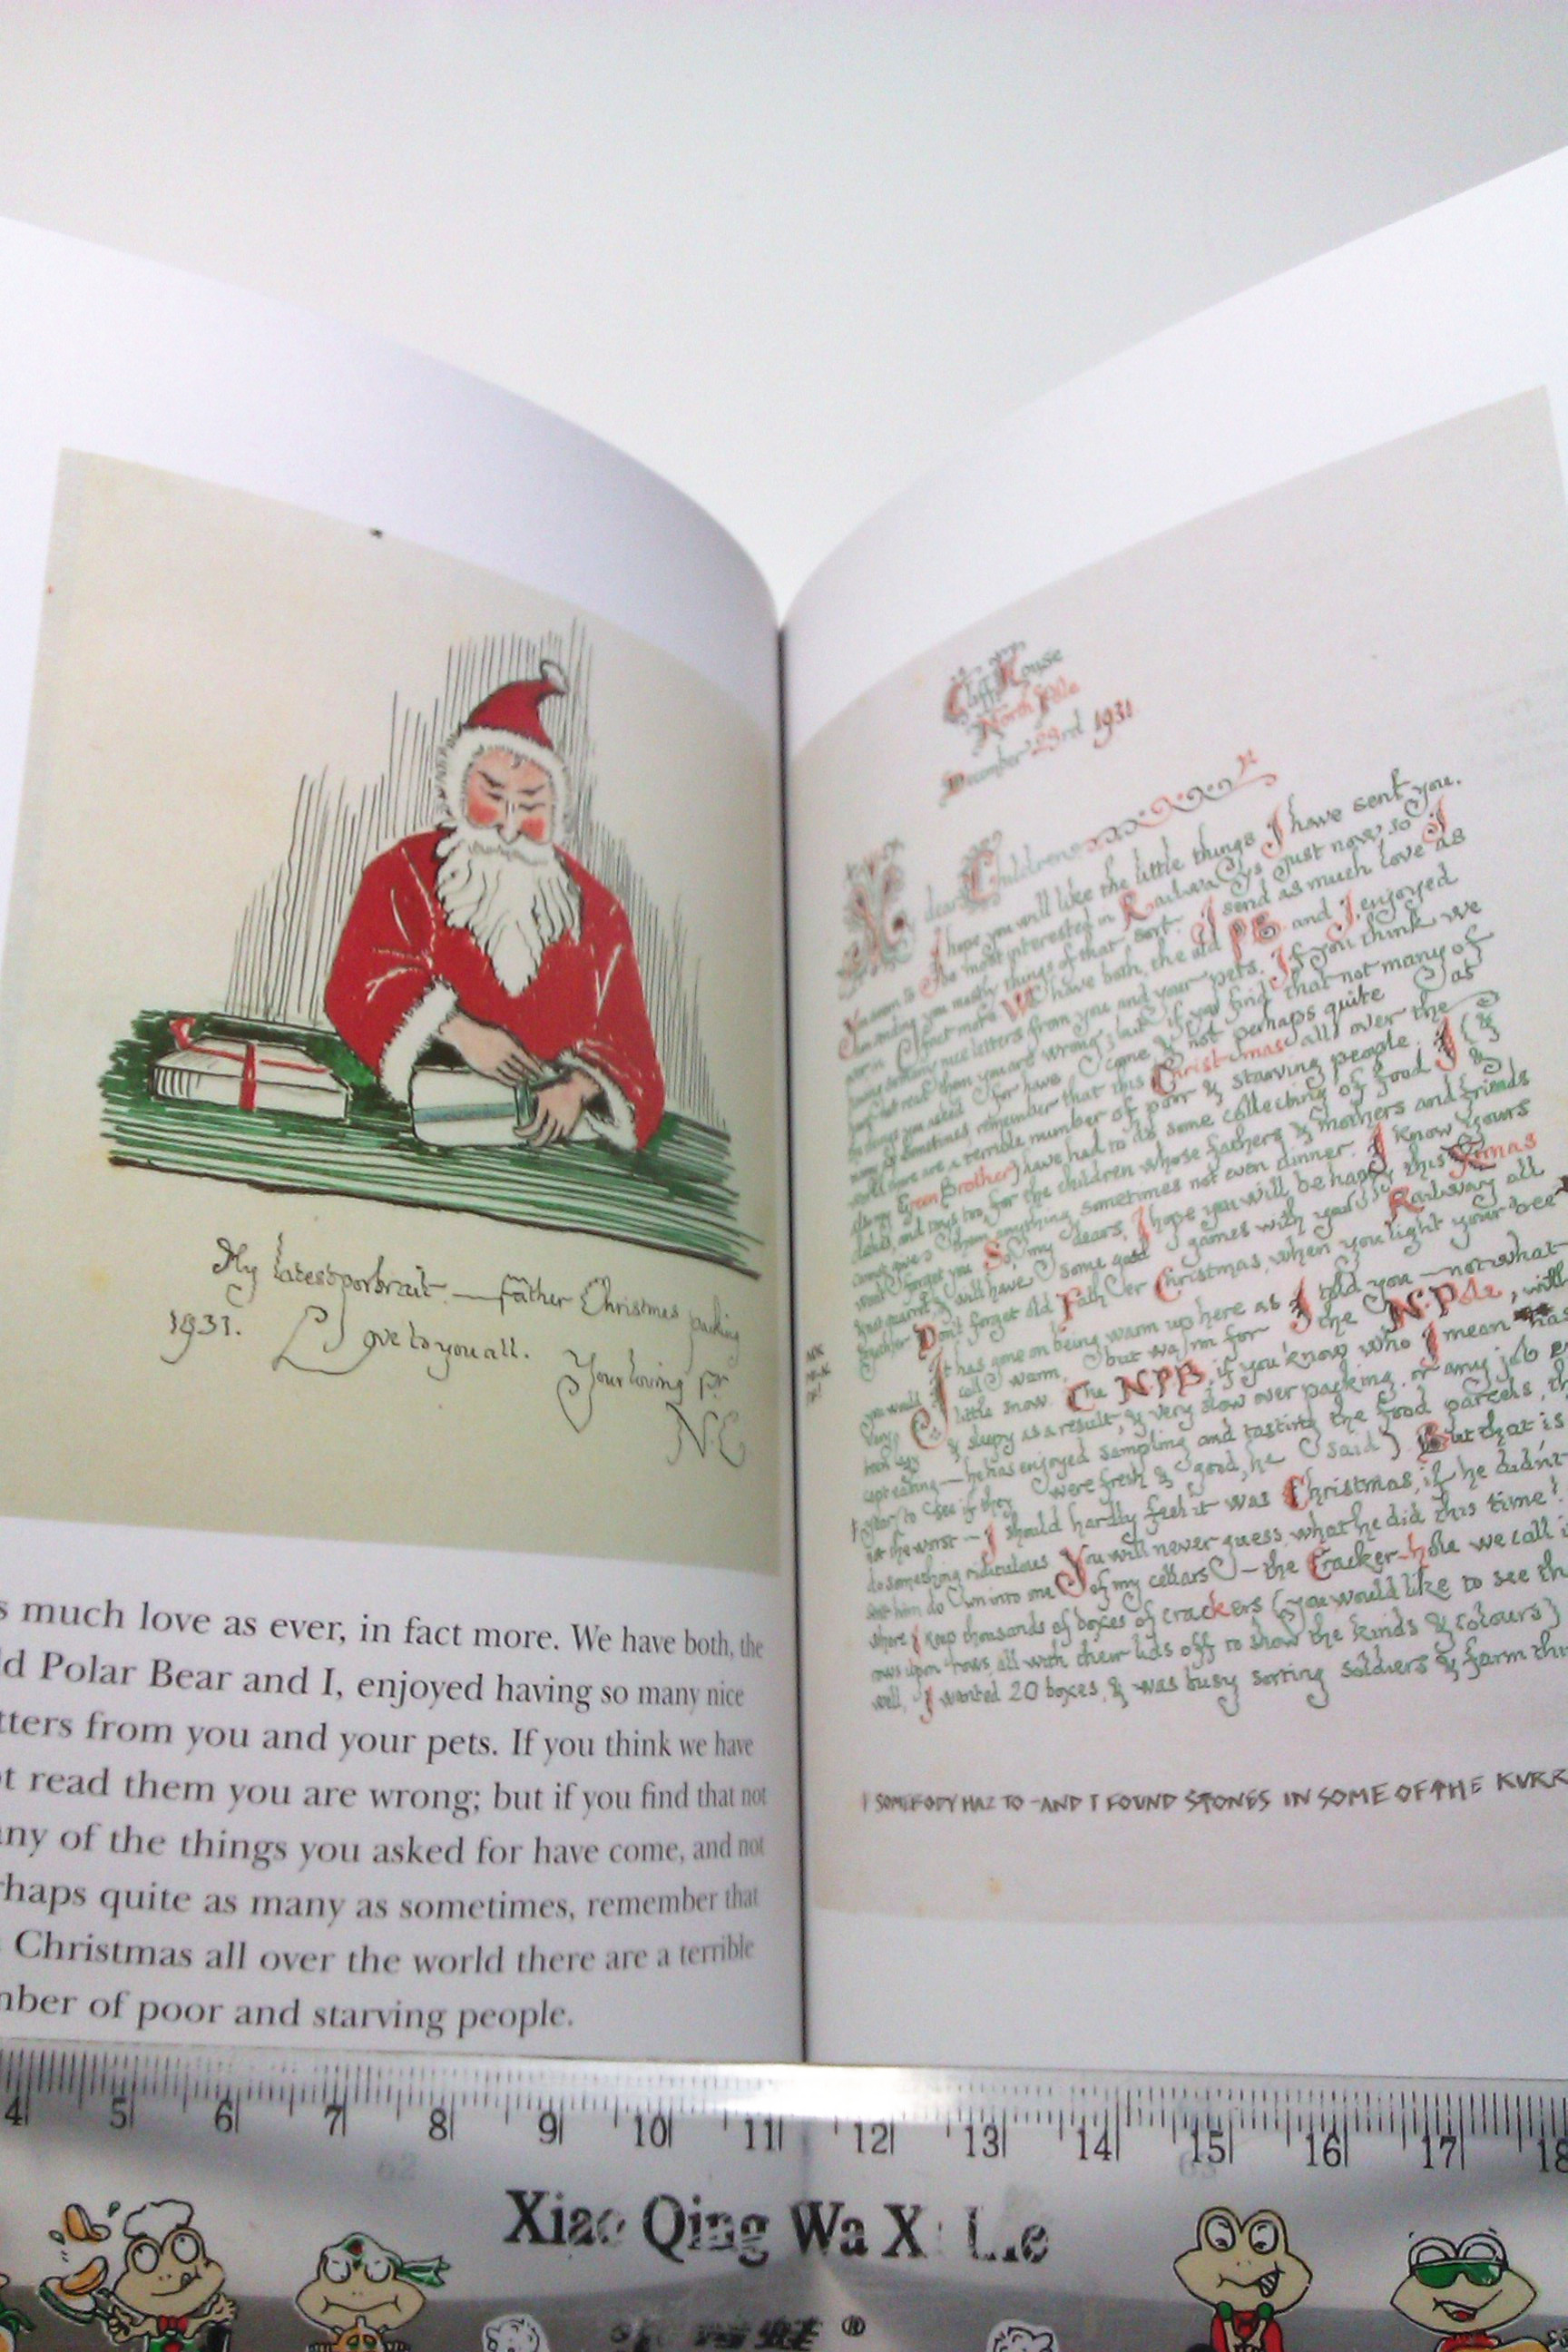 My latest portrait — Father Christmas packing
1931. Love to you all.
Your loving Fr.
N.C
s much love as ever, in fact more. We have both, the
ld Polar Bear and I, enjoyed having so many nice
tters from you and your pets. If you think we have
t read them you are wrong; but if you find that not
any of the things you asked for have come, and not
rhaps quite as many as sometimes, remember that
Christmas all over the world there are a terrible
nber of poor and starving people.
Cliff House
North Pole
December 23rd 1931
dear Children
I hope you will like the little things I have sent you.
You seem to be most interested in Railways just now, so I
am sending you mostly things of that sort. I send as much love as
ever in fact more. We have both, the old PB and I, enjoyed
having so many nice letters from you and your pets. If you think we
have not read them you are wrong; but if you find that not many of
the things you asked for have come, & not perhaps quite as
many as sometimes, remember that this Christmas all over the
world there are a terrible number of poor & starving people. I (&
also my Green Brother) have had to do some collecting of food &
clothes, and toys too, for the children whose fathers & mothers and friends
cannot give them anything, sometimes not even dinner. I know yours
won't forget you. So, my dears, I hope you will be happy this Xmas
& not quarrel, & will have some good games with your Railway all
together. Don't forget old Father Christmas, when you light your tree
It has gone on being warm up here as I told you — not what
you would call warm, but warm for the N.Pole, with
very little snow. The N.P.B, if you know who I mean has
been lazy & sleepy as a result, & very slow over packing, or any job
except eating — he has enjoyed sampling and tasting the food parcels, this
year (to see if they were fresh & good, he said). But that is
not the worst — I should hardly feel it was Christmas, if he didn't
do something ridiculous. You will never guess what he did this time!
I sent him down into one of my cellars — the Cracker-hole we call it
where I keep thousands of boxes of crackers (you would like to see them,
rows upon rows, all with their lids off to show the kinds & colours)
well, I wanted 20 boxes, & was busy sorting soldiers & farm thi
SOMEBODY HAZ TO - AND I FOUND STONES IN SOME OF THE KURR
4 5 6 7 8 9 10 11 12 13 14 15 16 17 18
62 63
Xiao Qing Wa
®